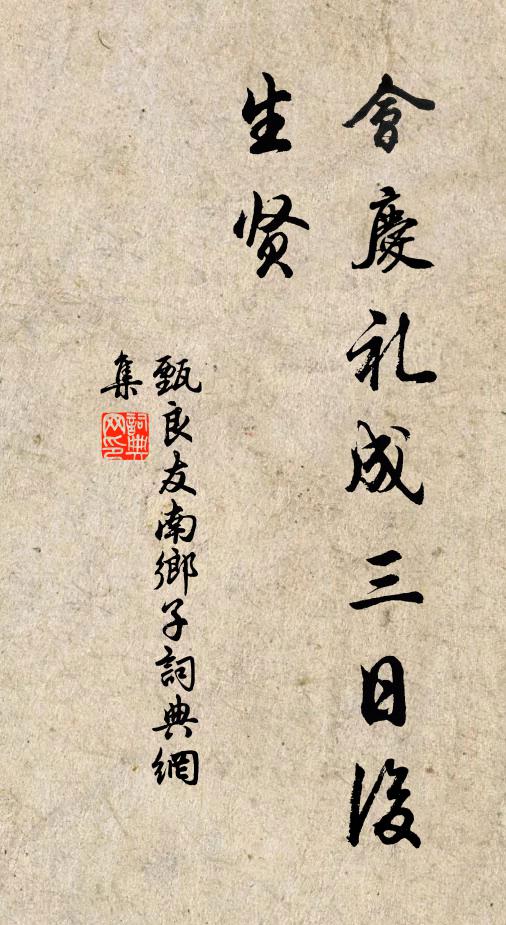 會慶礼成三日後
生贤
甄良友南鄉子詞典網
集
詞典
网印